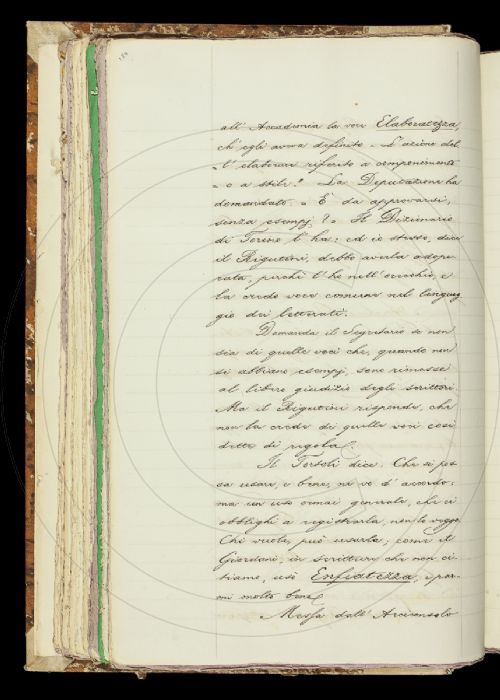 all' Accademia la voce Elaboratezza,
ch'egli aveva definito « L'azione del-
« l'elaborare riferito a componimento
« o a stile. » La Deputazione ha
domandato « È da approvarsi,
senza esempj? » Il Dizionario
di Torino l'ha; ed io stesso, dice
il Rigutini, debbo averla adope-
rata, perchè l'ho nell'orecchio, e
la credo voce comune nel linguag-
gio dei letterati.
Domanda il Segretario se non
sia di quelle voci che, quando non
si abbiano esempj, sono rimesse
al libero giudizio degli scrittori.
Ma il Rigutini risponde, che
non la crede di quelle voci così
dette di regola.
Il Tortoli dice: Che si pos-
sa usare, e bene, ne vo d'accordo;
ma un uso ormai generale, che ci
obblighi a registrarla, non lo veggo.
Chi vuole, può usarla; come il
Giordani, in scritture che non ci-
tiamo, usò Enfiatezza, e par-
mi molto bene.
Messa dall' Arciconsolo